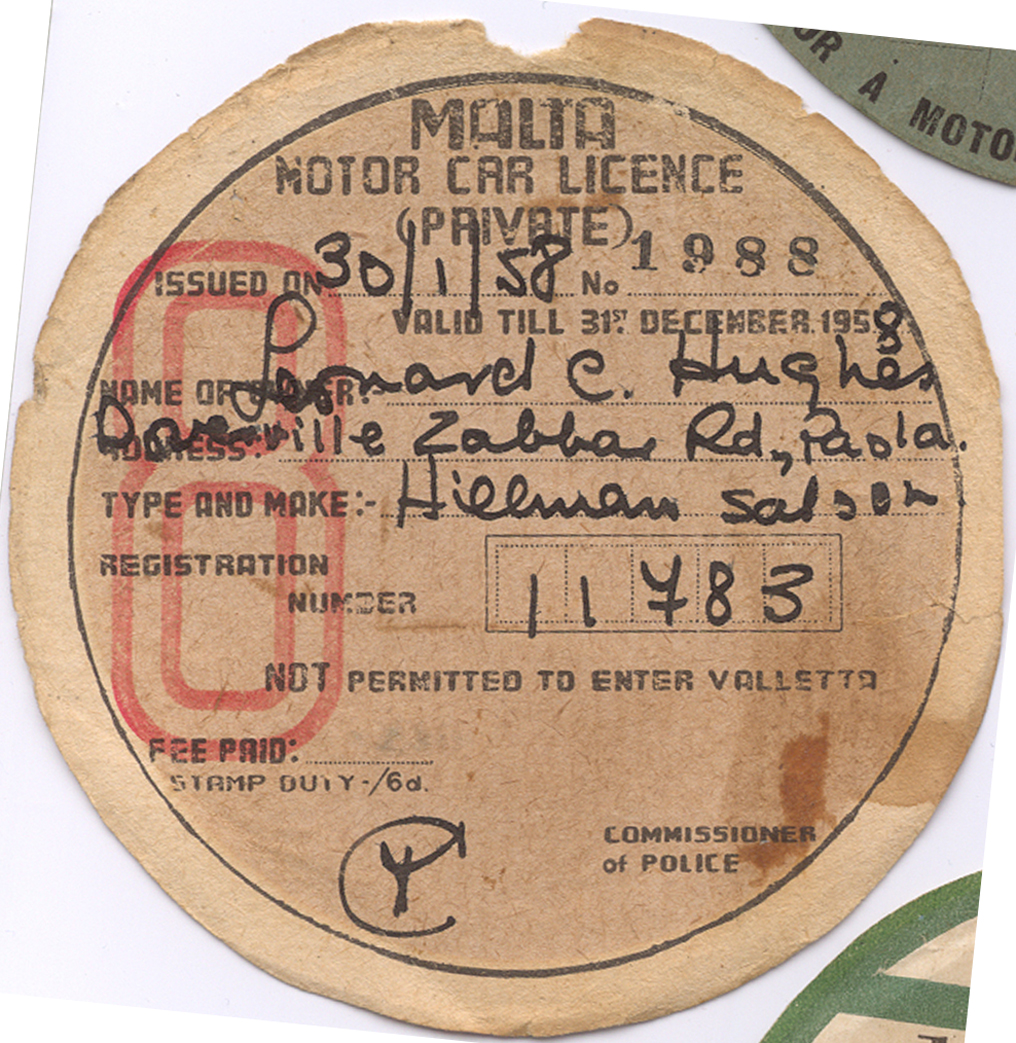 MALTA
MOTOR CAR LICENCE
(PRIVATE)
ISSUED ON 30/1/58 No 1988
VALID TILL 31ST DECEMBER 1958
NAME OF OWNER:- Leonard C. Hughes
ADDRESS:- Zabbar Rd, Paola.
TYPE AND MAKE:- Hillman Saloon
REGISTRATION
NUMBER 11783
NOT PERMITTED TO ENTER VALLETTA
FEE PAID:
STAMP DUTY -/6d.
COMMISSIONER
of POLICE
OR A MOTO